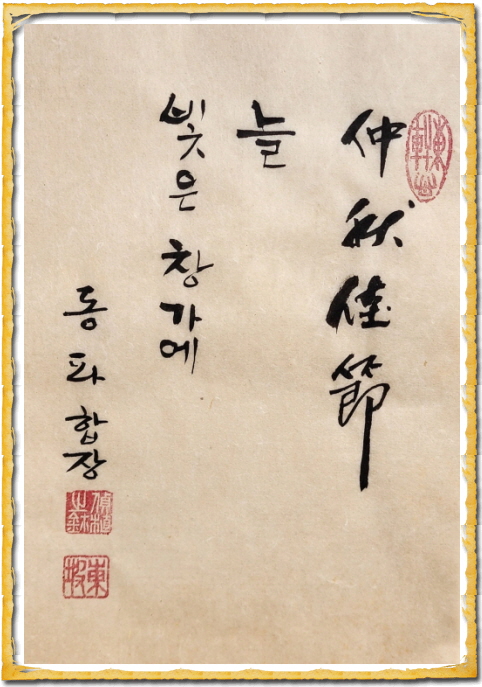 仲秋佳節
늘
빛은 창가에
동파 합장